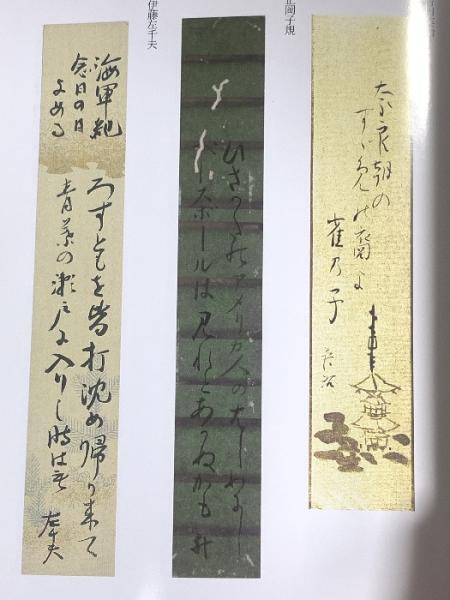 奈良朝の
すゞめの裔よ
雀乃子
正岡子規
ひさかたのアメリカ人のはしめにし
ベースボールは見れとあかぬかも 升
伊藤左千夫
海軍紀
念日の日
よめる
ろすともを皆打沈め帰り来て
青葉の瀬戸に入りし時はも 左千夫